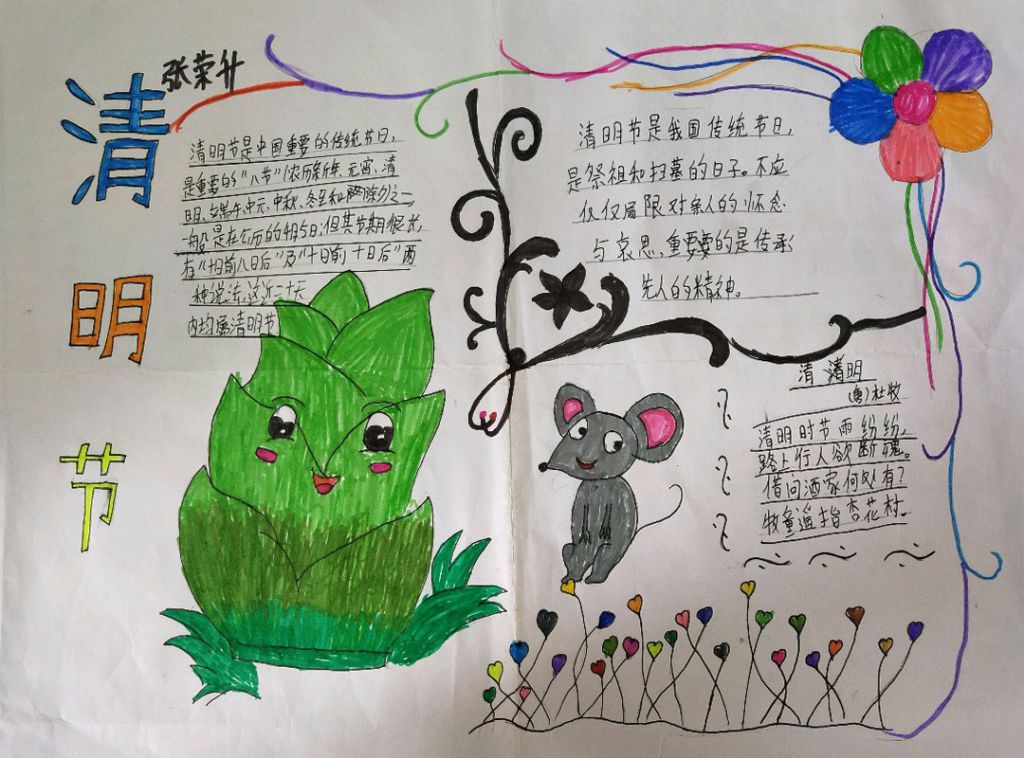 清明节
张荣升
清明节是中国重要的传统节日,
是重要的“八节”(农历新年、元宵、清
明、端午、中元、中秋、冬至和除夕之一
一般是在公历的4月5日;但其节期很长,
有“十日前八日后”及“十日前十日后”两
种说法,这近二十天
内均属清明节
清明节是我国传统节日,
是祭祖和扫墓的日子。不应
仅仅局限对亲人的怀念
与哀思,重要的是传承
先人的精神。
清 清明
(唐)杜牧
清明时节雨纷纷,
路上行人欲断魂。
借问酒家何处有?
牧童遥指杏花村。